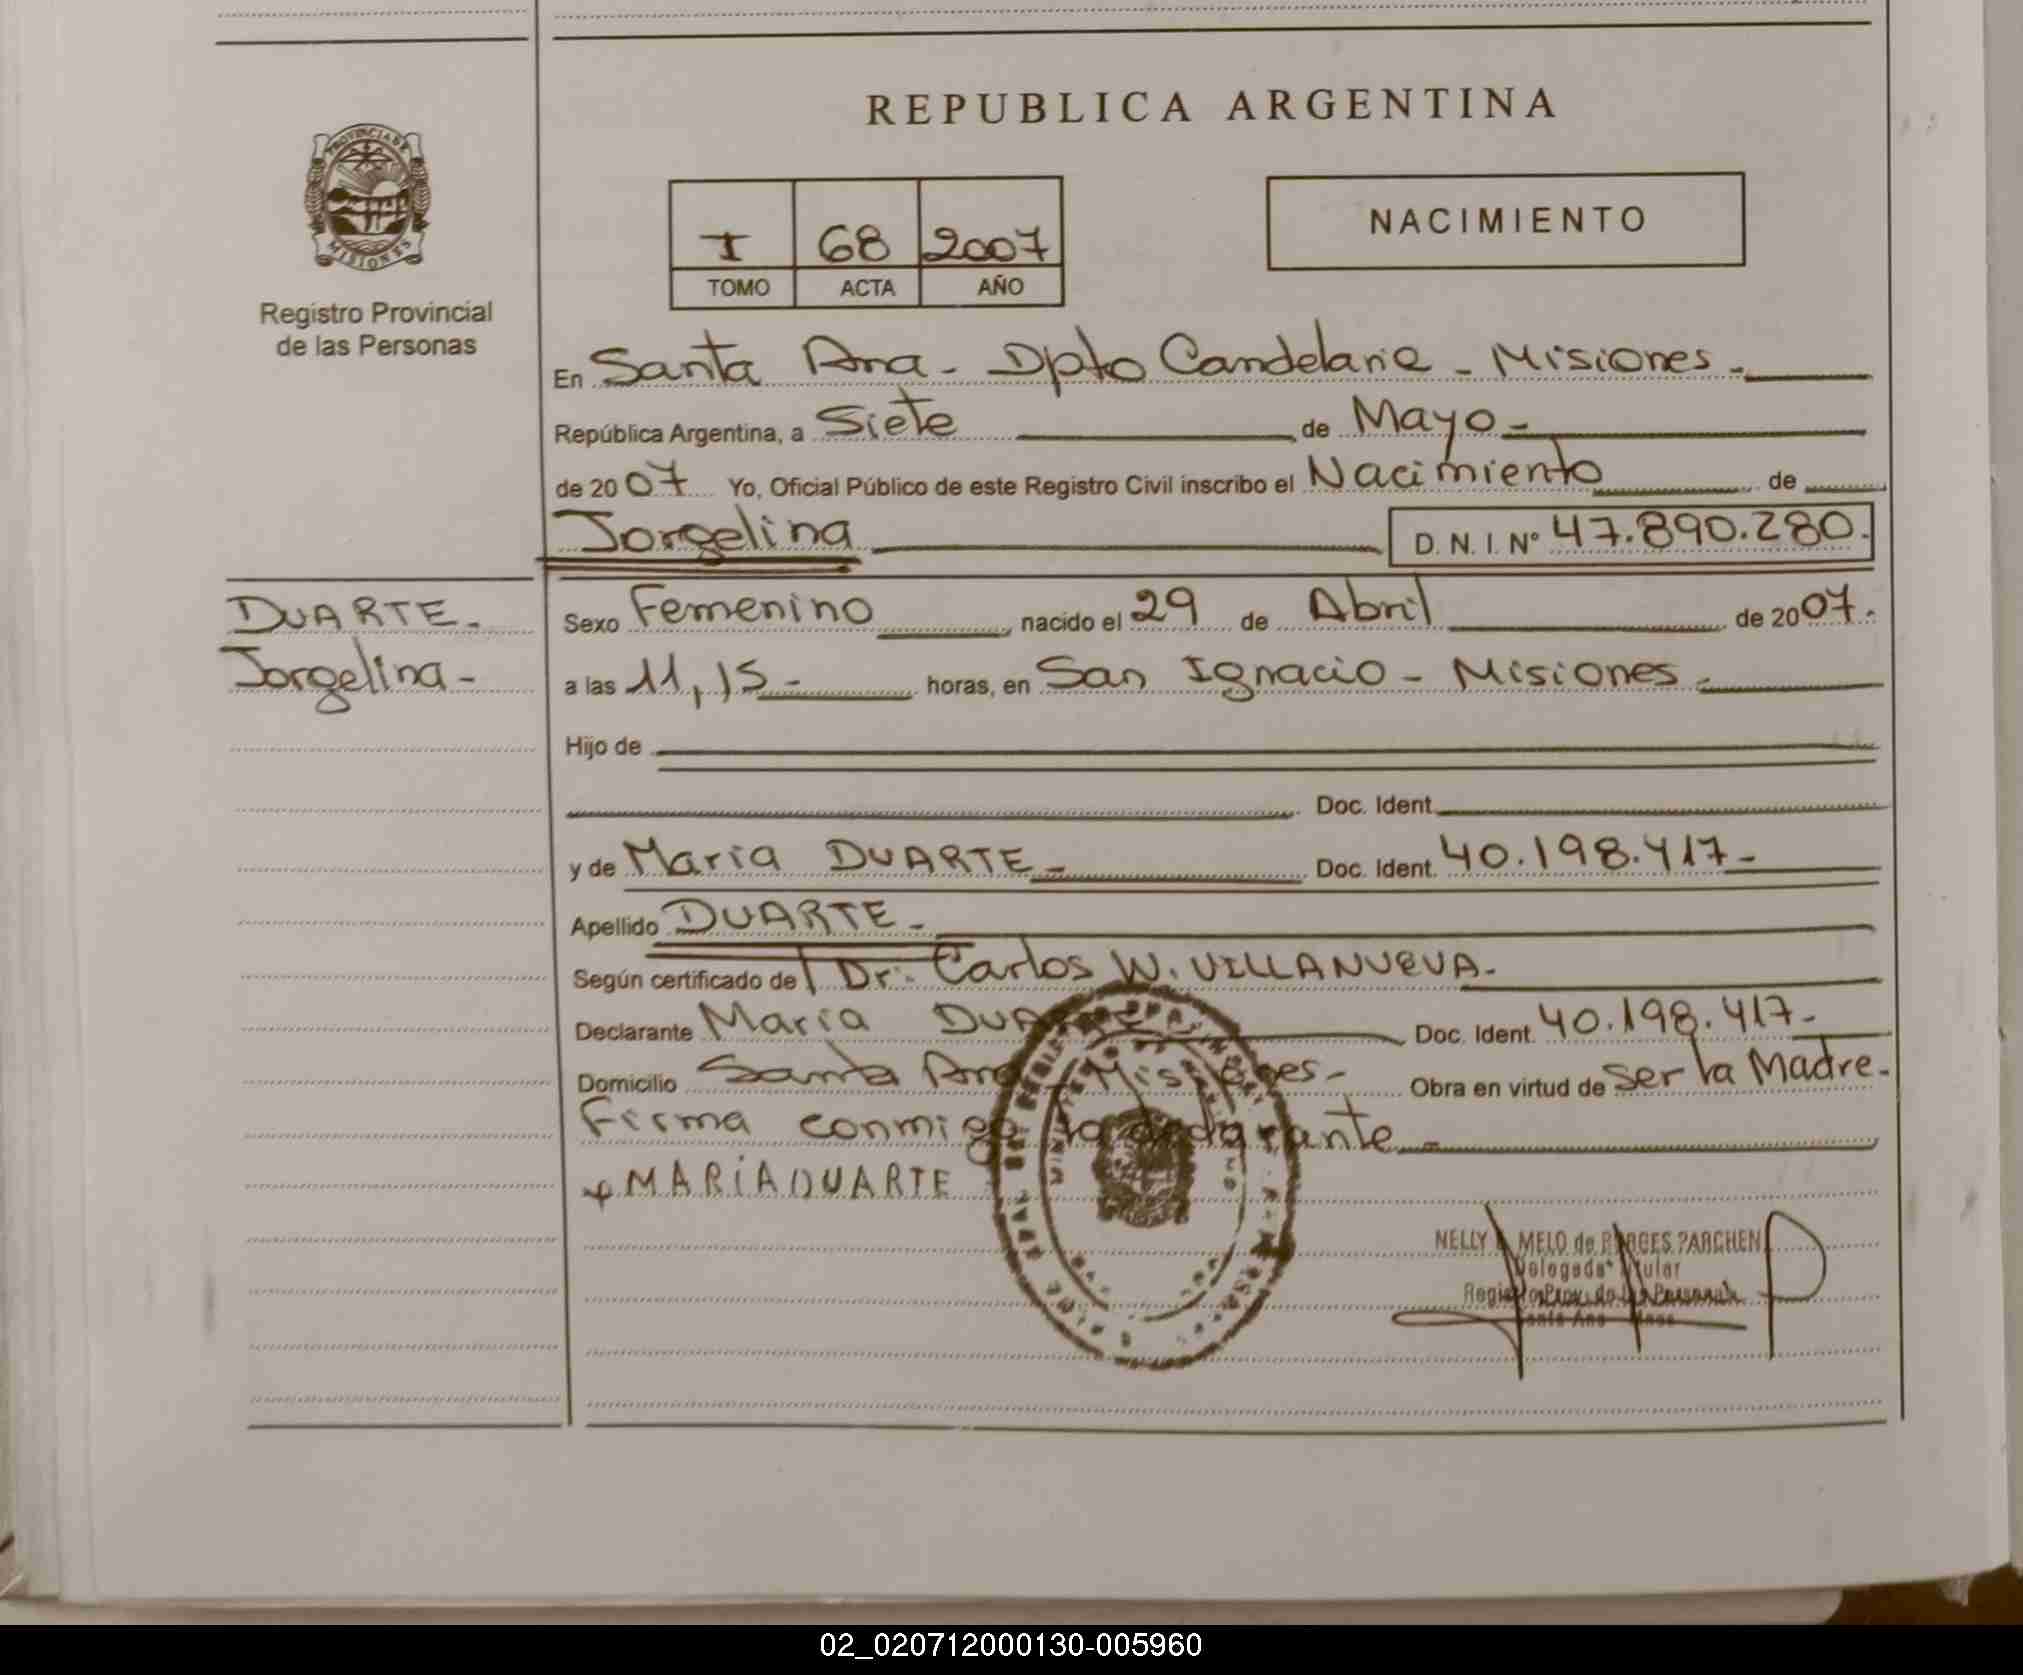 REPUBLICA ARGENTINA
PROVINCIA DE
MISIONES
Registro Provincial
de las Personas
I 68 2007
TOMO ACTA AÑO
NACIMIENTO
En Santa Ana - Dpto Candelaria - Misiones -
República Argentina, a Siete de Mayo -
de 2007 Yo, Oficial Público de este Registro Civil inscribo el Nacimiento de
Jorgelina D. N. I. N° 47.890.280.
DUARTE -
Jorgelina -
Sexo Femenino, nacido el 29 de Abril de 2007.
a las 11,15 - horas, en San Ignacio - Misiones -
Hijo de
Doc. Ident.
y de Maria DUARTE - Doc. Ident. 40.198.417 -
Apellido DUARTE -
Según certificado de Dr. Carlos W. VILLANUEVA -
Declarante Maria DUARTE Doc. Ident. 40.198.417 -
Domicilio Santa Ana - Misiones - Obra en virtud de ser la Madre -
Firma conmigo la declarante -
+ MARÍA DUARTE
NELLY MELO de BORGES PARCHEN
Delegada Titular
02_020712000130-005960